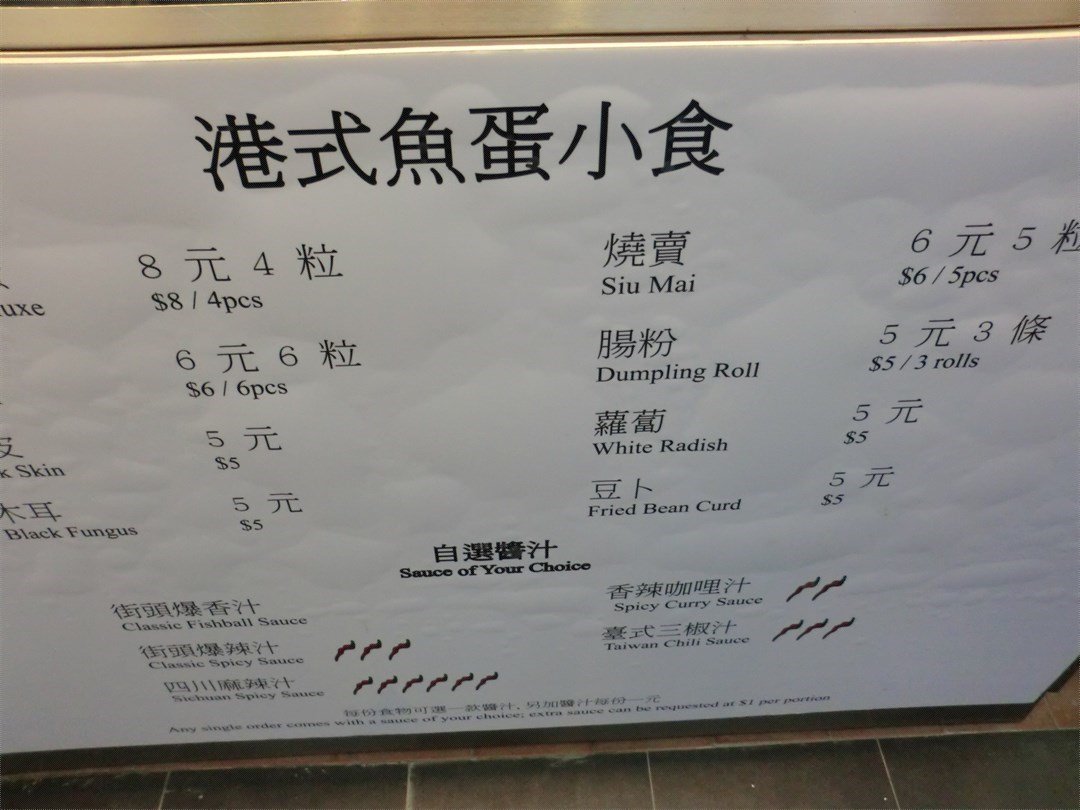 港式魚蛋小食
8 元 4 粒
$8 / 4pcs
6 元 6 粒
$6 / 6pcs
皮
Skin
5 元
$5
木耳
Black Fungus
5 元
$5
燒賣
Siu Mai
6 元 5 粒
$6 / 5pcs
腸粉
Dumpling Roll
5 元 3 條
$5 / 3 rolls
蘿蔔
White Radish
5 元
$5
豆卜
Fried Bean Curd
5 元
$5
自選醬汁
Sauce of Your Choice
街頭爆香汁
Classic Fishball Sauce
街頭爆辣汁
Classic Spicy Sauce
四川麻辣汁
Sichuan Spicy Sauce
香辣咖哩汁
Spicy Curry Sauce
臺式三椒汁
Taiwan Chili Sauce
每份食物可選一款醬汁, 另加醬汁每份一元
Any single order comes with a sauce of your choice; extra sauce can be requested at $1 per portion